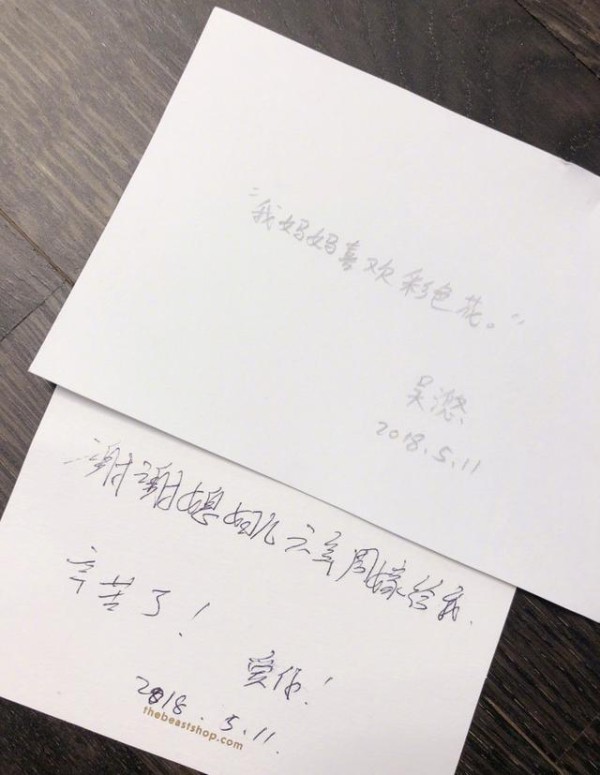 "我妈妈喜欢彩色花。"
吴
2018.5.11
谢谢媳妇儿六年前嫁给我.
辛苦了!
爱你!
2018.5.11.
thebeastshop.com